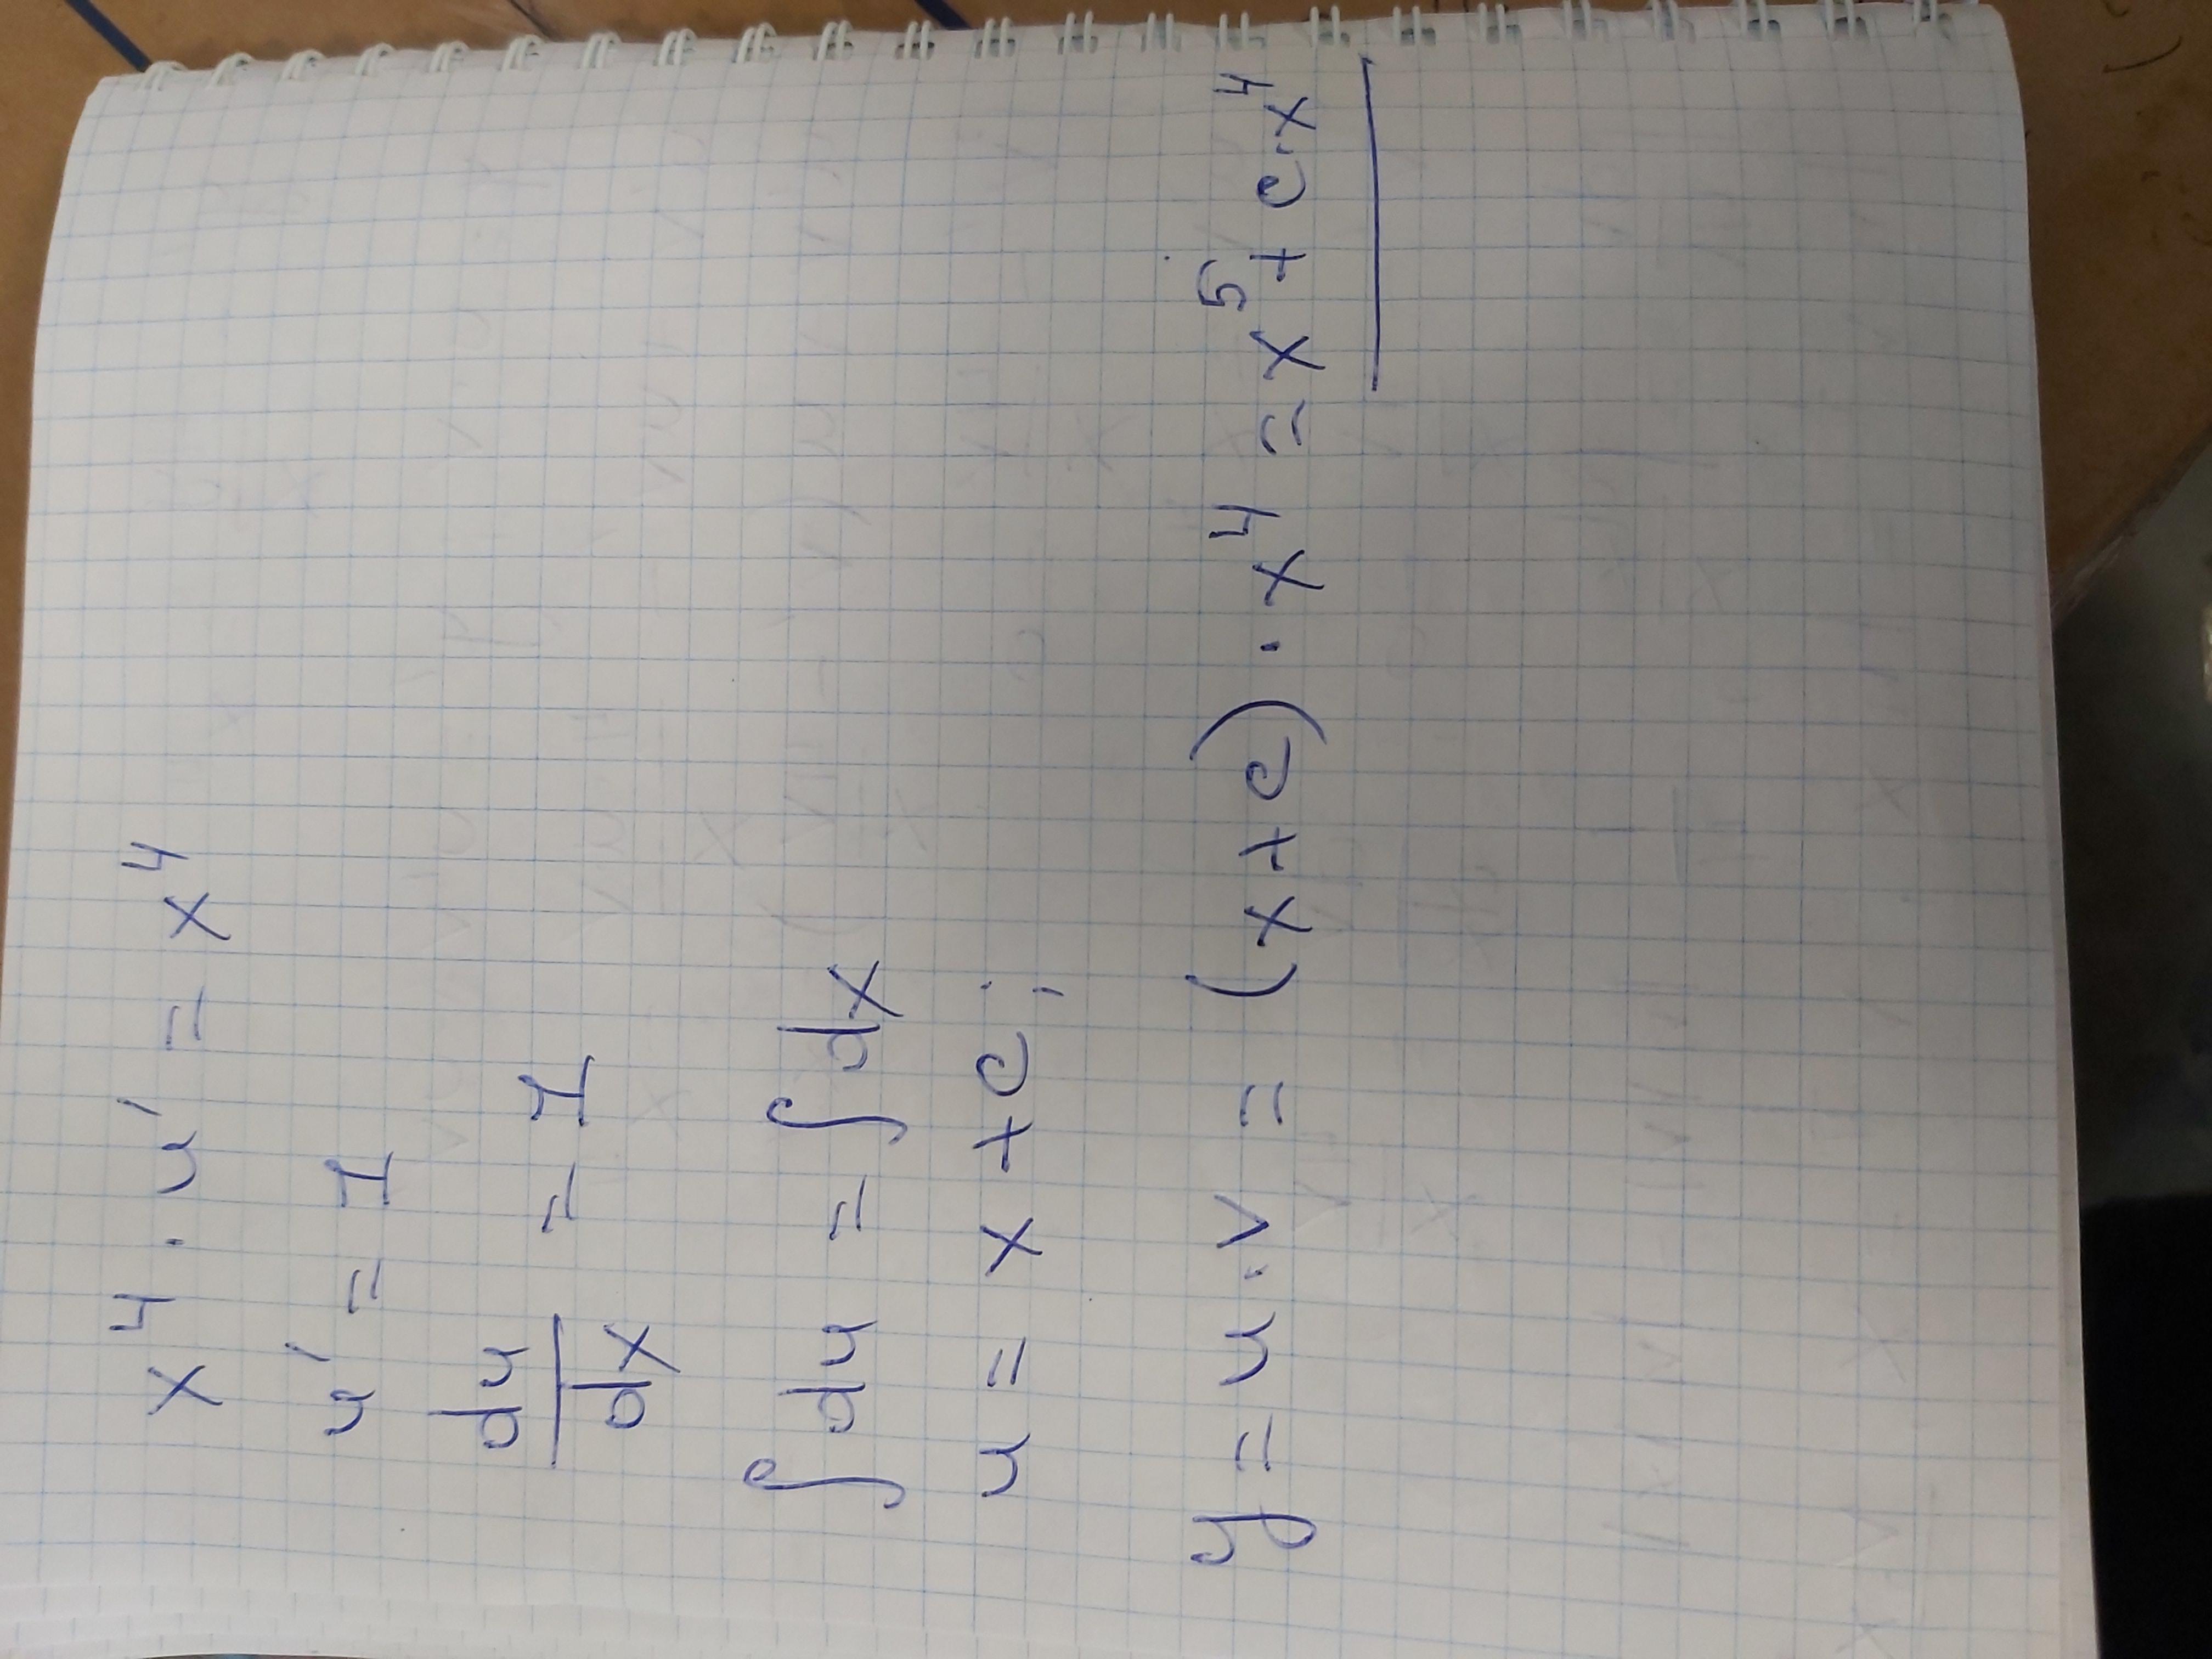 x⁴ · u' = x⁴
u' = 1
du/dx = 1
∫ du = ∫ dx
u = x + c;
y = u · v = (x + c) · x⁴ = x⁵ + c · x⁴